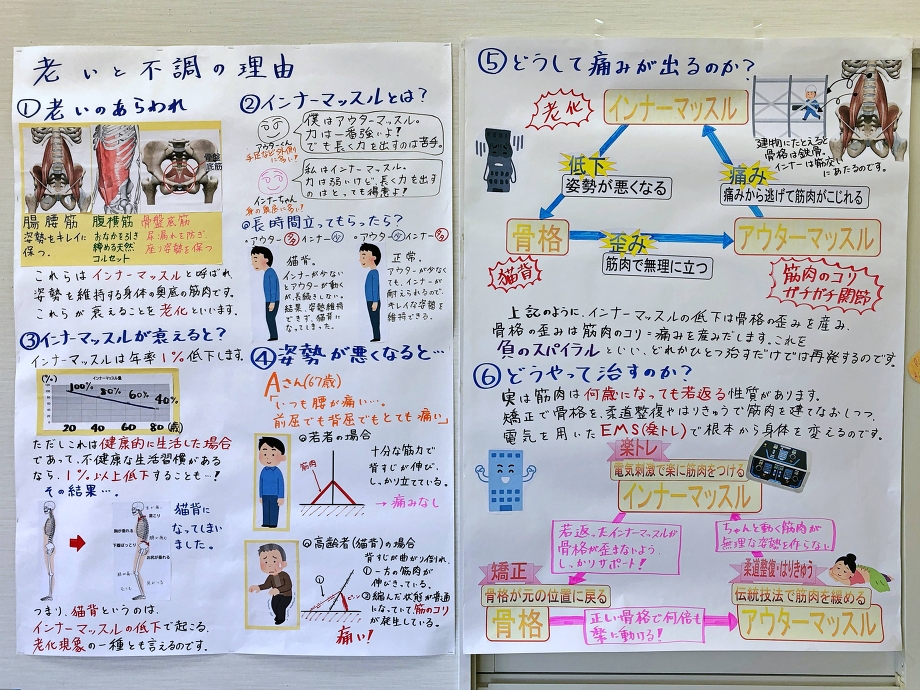 老いと不調の理由
①老いのあらわれ
骨盤
底筋
腸腰筋
姿勢をキレイに
保つ。
腹横筋
おなかを引き
締める天然
コルセット
骨盤底筋
尿漏れを防ぎ、
座り姿勢を保つ
これらはインナーマッスルと呼ばれ
姿勢を維持する身体の奥底の筋肉です。
これらが衰えることを老化といいます。
②インナーマッスルとは?
アウターくん
手足など外側
に多い!
僕はアウターマッスル。
力は一番強いよ!
でも長く力を出すのは苦手。
インナーちゃん
身の奥底に多い!
私はインナーマッスル。
力は弱いけど、長く力を出す
のはとっても得意よ!
◎長時間立ってもらったら?
・アウター多インナー少
猫背。
インナーが少ない
とアウターが動く
が、長続きしない。
結果、姿勢維持
できず、猫背に
なってしまった。
・アウター少インナー多
正常。
アウターが少なく
ても、インナーが
耐えられるので、
キレイな姿勢を
維持できる。
③インナーマッスルが衰えると?
インナーマッスルは年率1%低下します。
(%)
インナーマッスル量
100% 80% 60% 40%
20 40 60 80 (歳)
ただしこれは健康的に生活した場合
であって、不健康な生活習慣がある
なら、1%以上低下することも…!
その結果…。
猫背に
なってしまい
ました。
つまり、猫背というのは、
インナーマッスルの低下で起こる、
老化現象の一種とも言えるのです。
④姿勢が悪くなると…
Aさん(67歳)
「いつも腰が痛い…。
前屈でも背屈でもとても痛い」
◎若者の場合
筋肉
十分な筋力で
背すじが伸び、
しっかり立てている。
→痛みなし
◎高齢者(猫背)の場合
背すじが曲がり倒れ、
①一方の筋肉が
伸びきっている。
②縮んだ状態が普通
になっていて、筋のコリ
が発生している。
痛い!
⑤どうして痛みが出るのか?
老化
インナーマッスル
建物にたとえると
骨格は鉄骨、
インナーは筋交い
にあたるのです。
低下
姿勢が悪くなる
痛み
痛みから逃げて筋肉がこじれる
骨格
歪み
筋肉で無理に立つ
アウターマッスル
猫背
筋肉のコリ
ガチガチ関節
上記のように、インナーマッスルの低下は骨格の歪みを産み、
骨格の歪みは筋肉のコリ=痛みを産みだします。これを
負のスパイラルといい、どれかひとつ治すだけでは再発するのです。
⑥どうやって治すのか?
実は筋肉は何歳になっても若返る性質があります。
矯正で骨格を、柔道整復やはりきゅうで筋肉を建てなおしつつ、
電気を用いたEMS(楽トレ)で根本から身体を変えるのです。
楽トレ
電気刺激で楽に筋肉をつける
インナーマッスル
若返ったインナーマッスルが
骨格が歪まないよう、
しっかりサポート!
ちゃんと動く筋肉が
無理な姿勢を作らない
矯正
骨格が元の位置に戻る
骨格
正しい骨格で何倍も
楽に動ける!
柔道整復・はりきゅう
伝統技法で筋肉を緩める
アウターマッスル